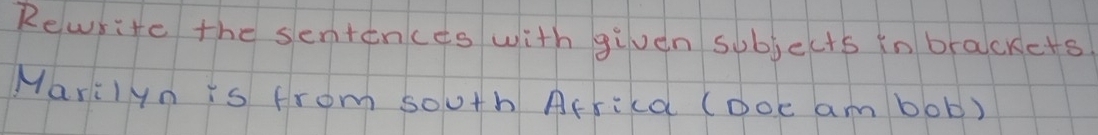 Rewrite the sentences with given subjects in brackets.
Marilyn is from south Africa (Doc am bob)